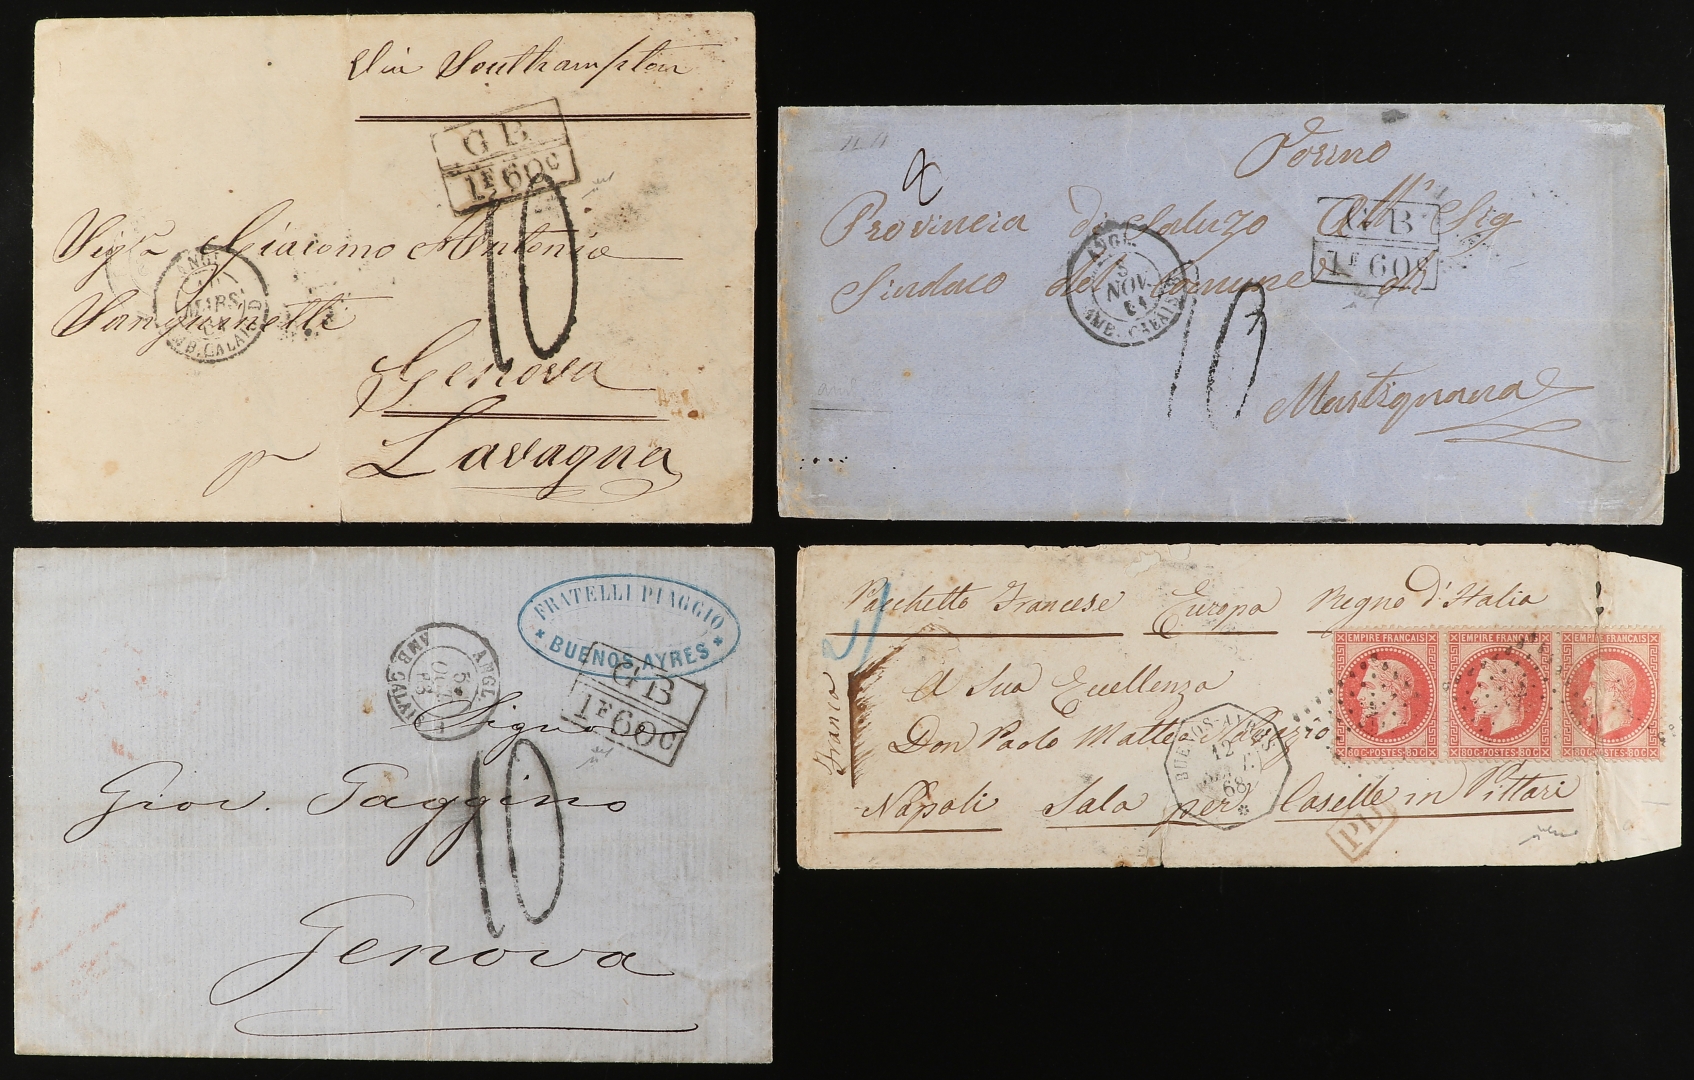 Via Southampton
GB
1F60c
10
Sigr Giacomo Antonio
Sanguinetti
ANGL.
MARS
AMB. CALAIS D
Genova
p Lavagna
Torino
8
Provincia di Saluzo All' Sig
GB
1F60c
Sindaco del Comune di
ANGL.
5
NOV.
64
AMB. CALAIS
10
FRATELLI PIAGGIO
* BUENOS AYRES *
GB
1F60c
ANGL.
5
OCT.
AMB. CALAIS
Signore
Giov. Taggino
10
Genova
Pacchetto Francese Europa Regno d'Italia
2
Franca
EMPIRE FRANCAIS EMPIRE FRANCAIS EMPIRE FRANCAIS
80C-POSTES-80C 80C-POSTES-80C 80C-POSTES-80C
A Sua Eccellenza
Don Paolo Matteo
BUENOS-AYRES
12
68
Napoli Sala per Caselle in Pittari
PD